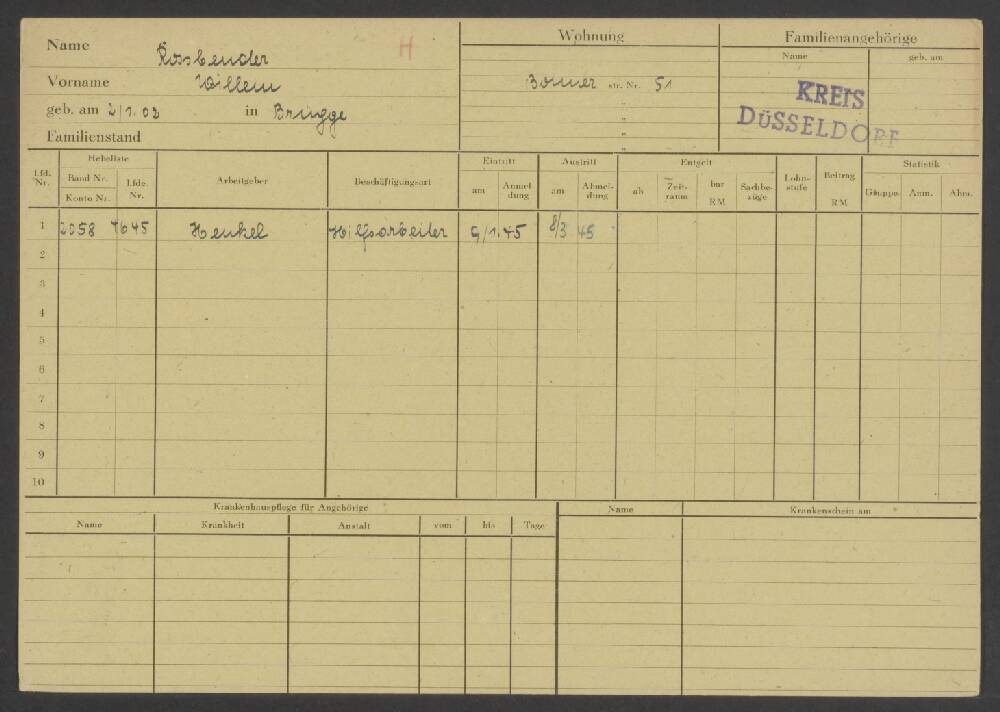 Name Rossbender H
Vorname Willem
geb. am 2/1.03 in Brügge
Familienstand
Wohnung
Bonner str. Nr. 51
"
"
Familienangehörige
Name geb. am
KREIS
DÜSSELDORF
Lfd. Nr. Hebeliste Arbeitgeber Beschäftigungsart Eintritt Austritt Entgelt Lohnstufe Beitrag RM Statistik
Band Nr. Konto Nr. Lfde. Nr. am Anmeldung am Abmeldung ab Zeitraum bar RM Sachbezüge Gruppe Anm. Abm.
1 2058 4645 Henkel Hilfsarbeiter 9/1.45 8/3 45
2
3
4
5
6
7
8
9
10
Krankenhauspflege für Angehörige
Name Krankheit Anstalt vom bis Tage
Name Krankenschein am